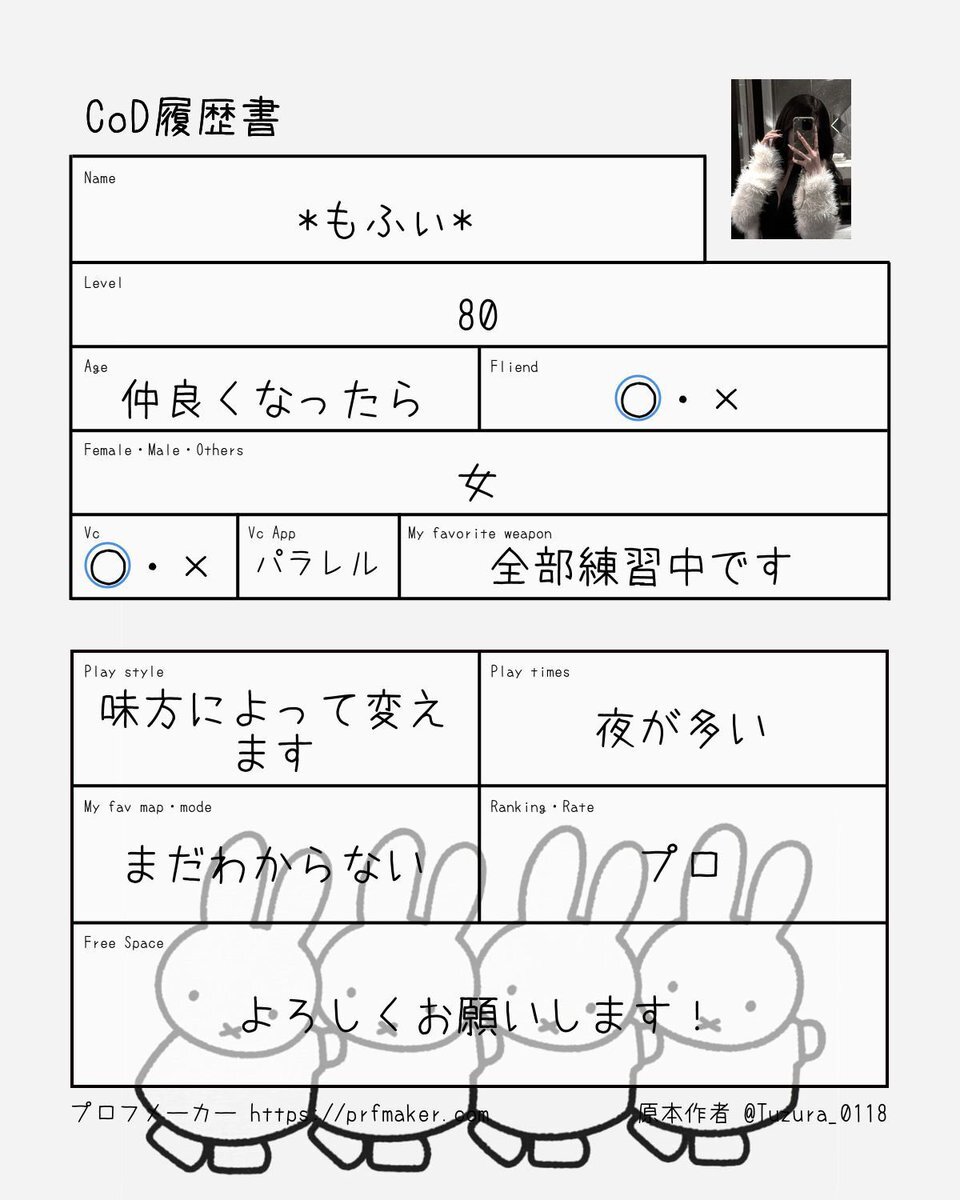 CoD履歴書
Name
*もふぃ*
Level
80
Age
仲良くなったら
Fliend
○・×
Female・Male・Others
女
Vc
○・×
Vc App
パラレル
My favorite weapon
全部練習中です
Play style
味方によって変え
ます
Play times
夜が多い
My fav map・mode
まだわからない
Ranking・Rate
プロ
Free Space
よろしくお願いします！
プロフメーカー https://prfmaker.com
原本作者 @Tuzura_0118